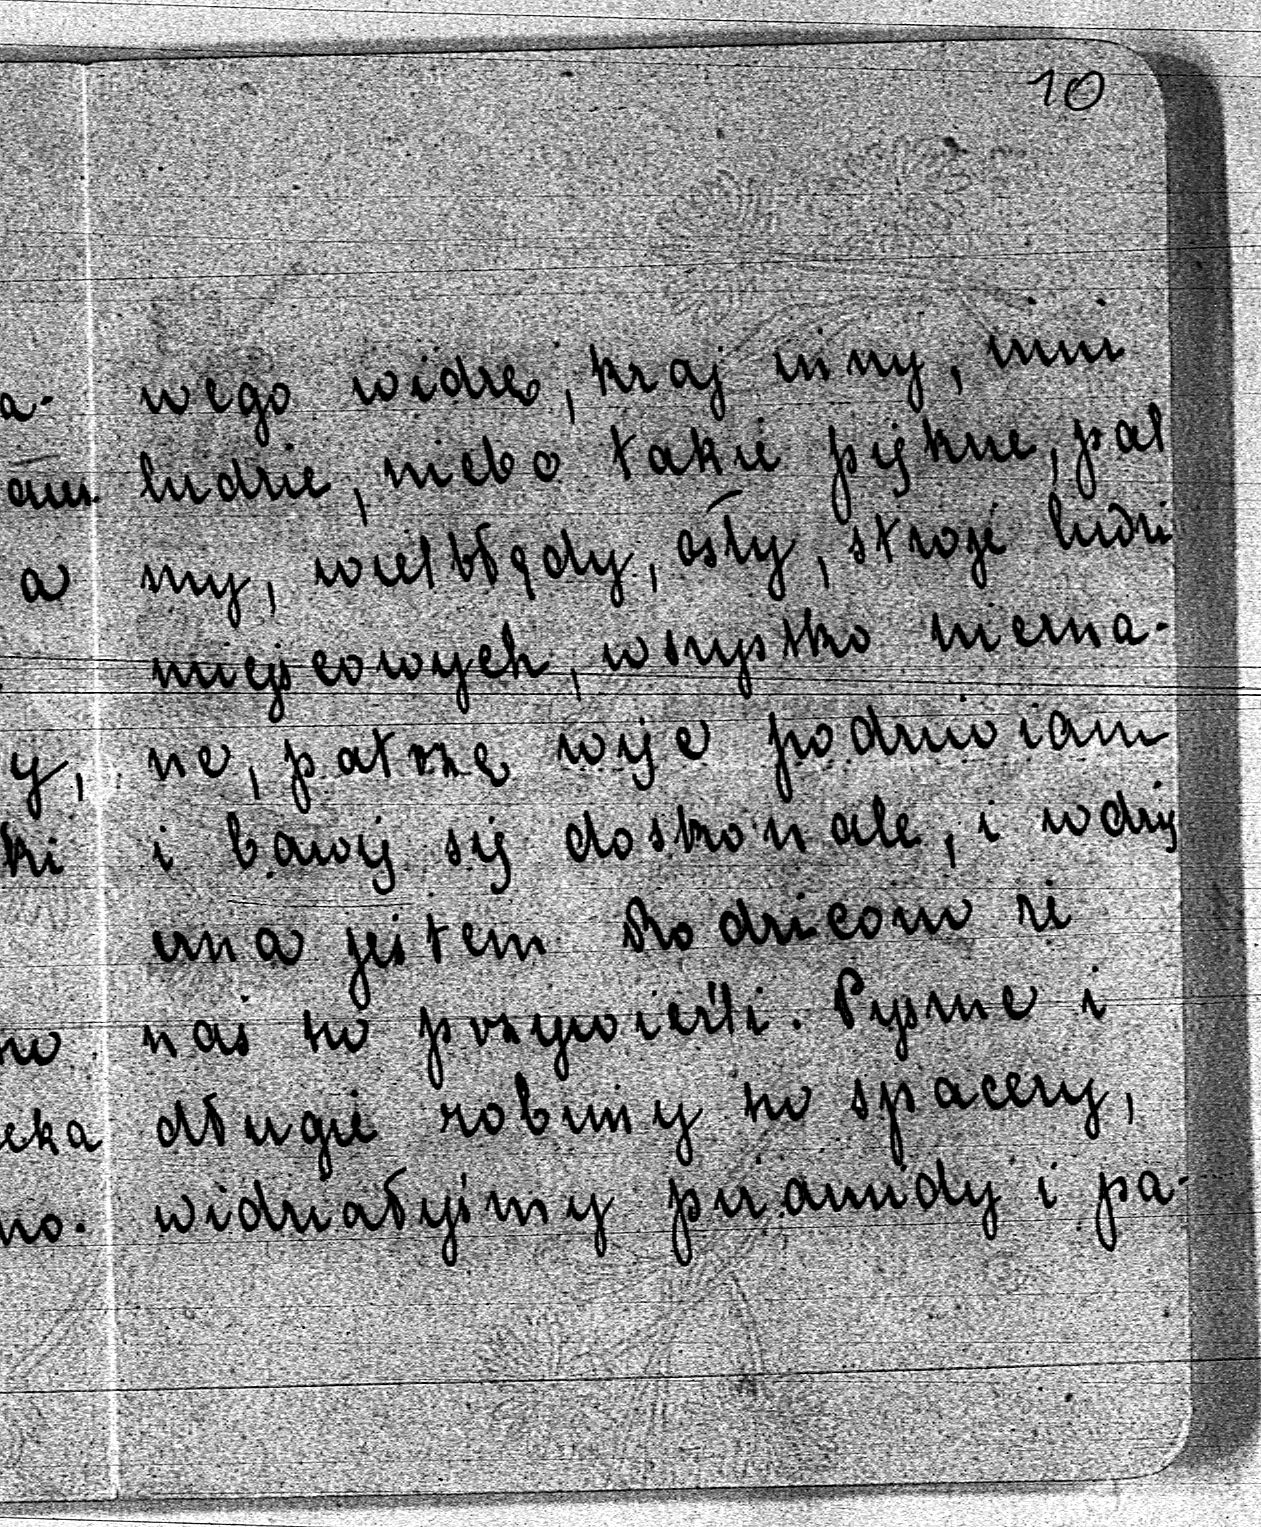 10
wego widzę, kraj inny, inni
ludzie, niebo takie piękne, pal
my, wielbłądy, osły, stroje ludzi
miejscowych, wszystko niezna-
ne, patrzę więc podziwiam
i bawię się doskonale, i wdzię
czna jestem Rodzicom że
nas tu przywieźli. Pyszne i
długie robimy tu spacery,
widziałyśmy piramidy i pa-